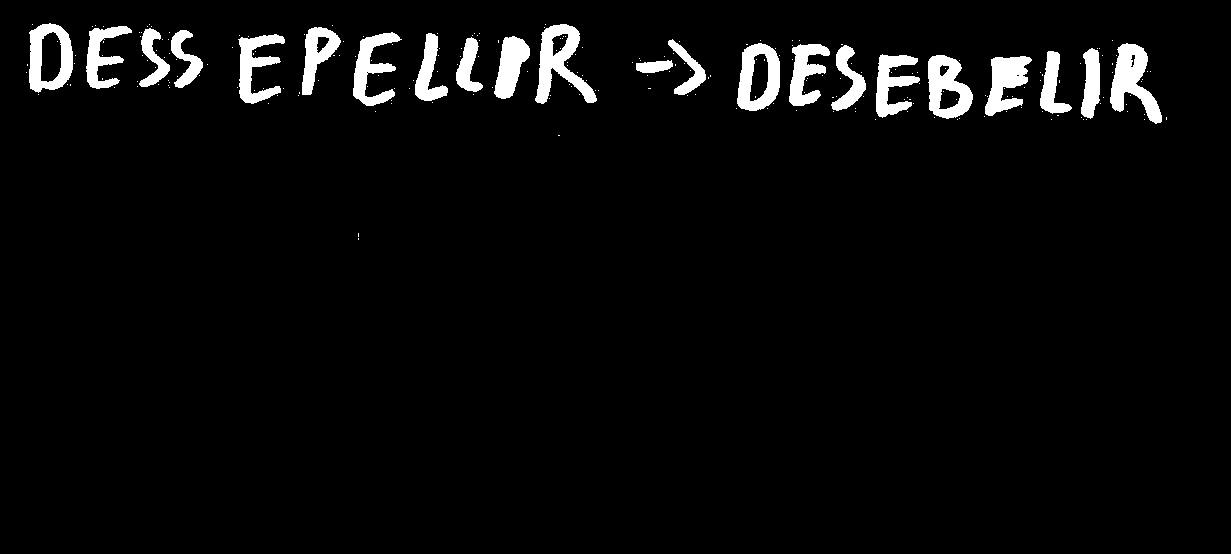 DESS EPELLIR -> DESEBELIR